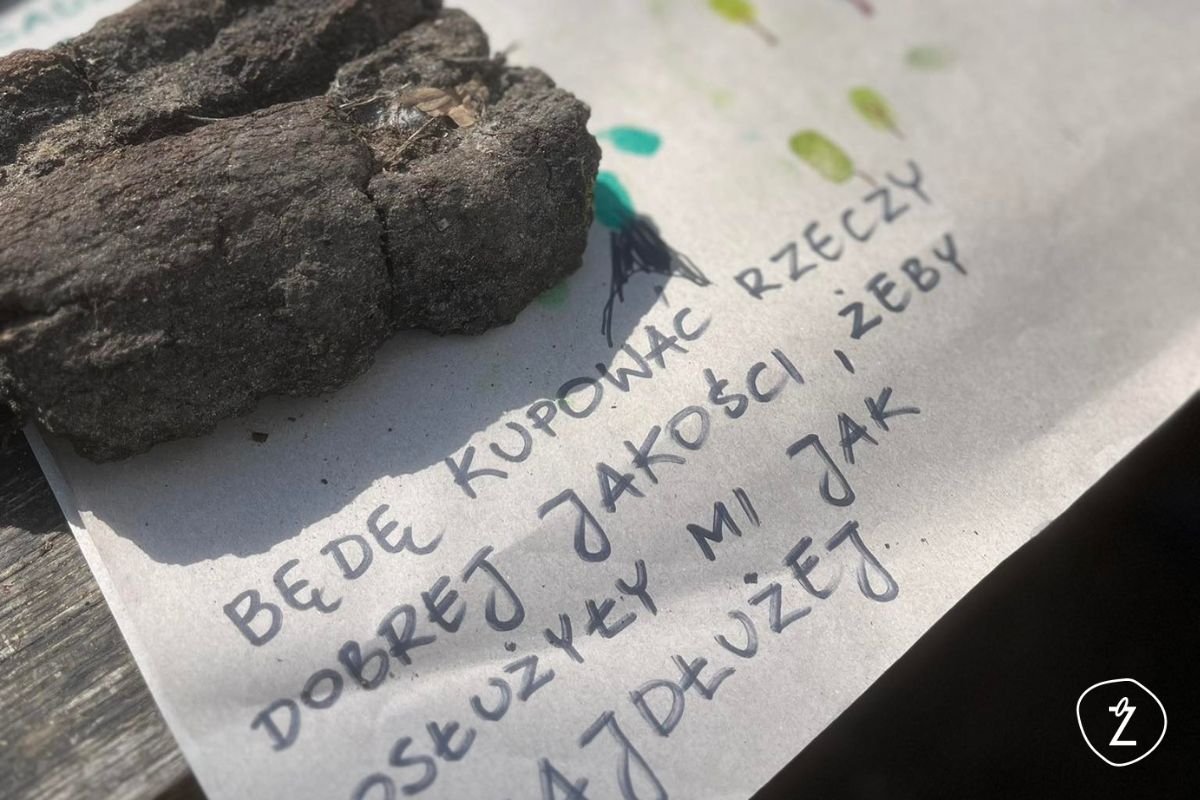 BĘDĘ KUPOWAĆ RZECZY
DOBREJ JAKOŚCI, ŻEBY
OSŁUŻYŁY MI JAK
AJDŁUŻEJ
Ż